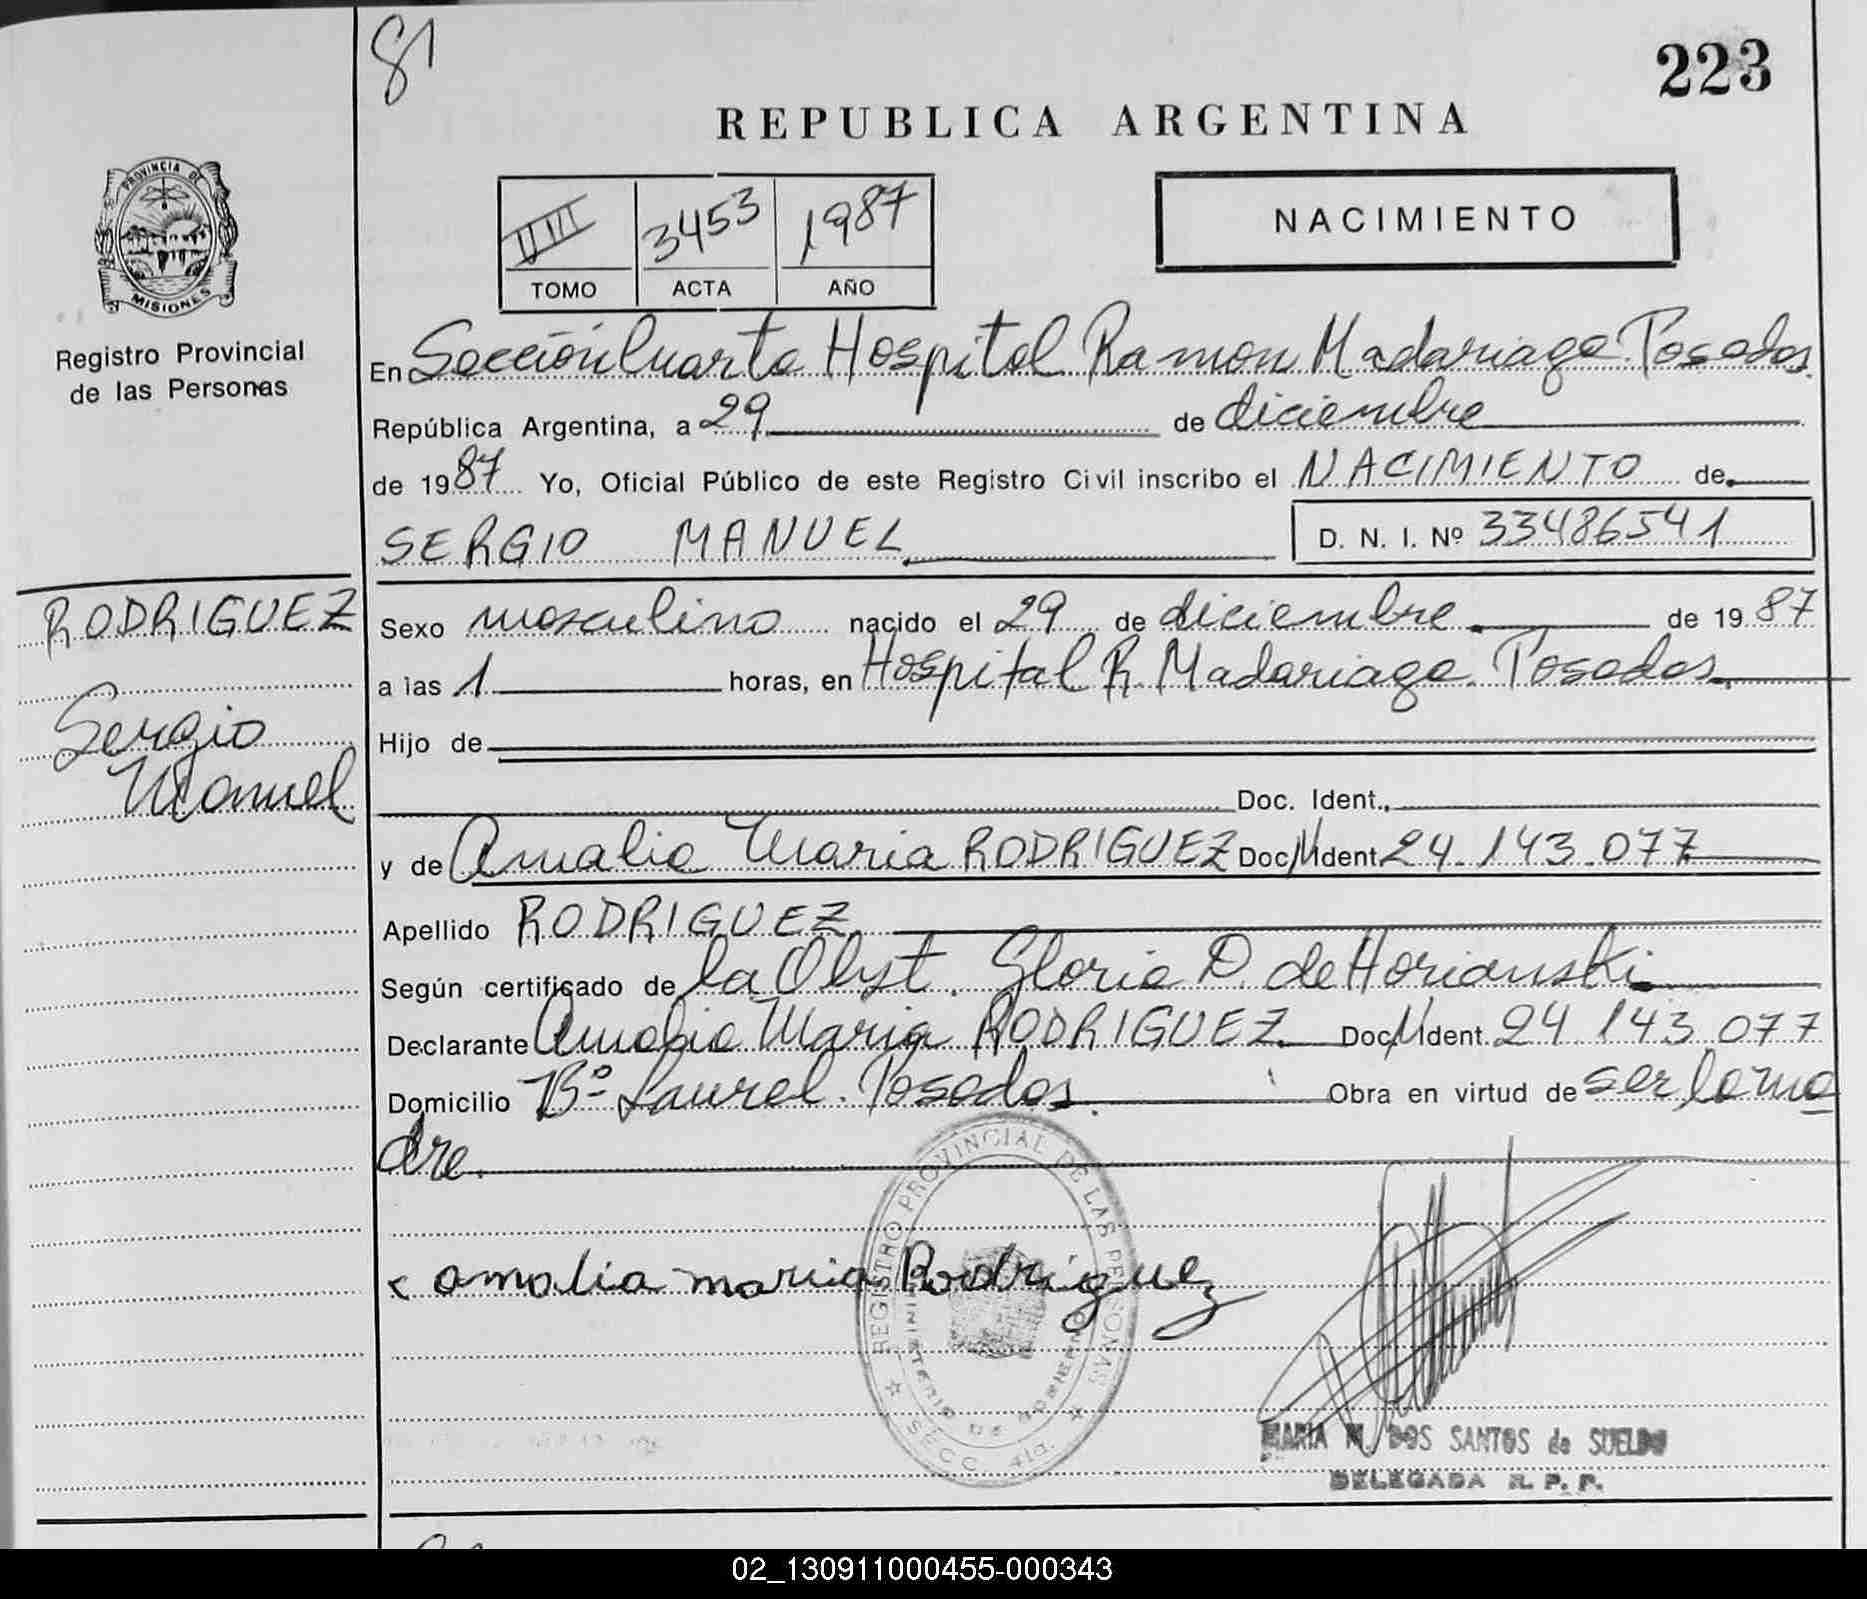 81
223
REPUBLICA ARGENTINA
PROVINCIA DE
MISIONES
Registro Provincial
de las Personas
3453 1987
TOMO ACTA AÑO
NACIMIENTO
En Sección Cuarta Hospital Ramon Madariaga. Posadas.
República Argentina, a 29 de diciembre
de 1987 Yo, Oficial Público de este Registro Civil inscribo el NACIMIENTO de
SERGIO MANUEL D. N. I. Nº 33486541
RODRIGUEZ
Sergio
Manuel
Sexo masculino nacido el 29 de diciembre de 1987
a las 1 horas, en Hospital R. Madariaga. Posadas.
Hijo de
Doc. Ident.
y de Amalia Maria RODRIGUEZ Doc. Ident 24.143.077
Apellido RODRIGUEZ
Según certificado de la Obst. Gloria D. de Horianski
Declarante Amalia Maria RODRIGUEZ Doc. Ident. 24.143.077
Domicilio Bº Laurel. Posadas. Obra en virtud de ser la ma
dre.
REGISTRO PROVINCIAL DE LAS PERSONAS
MINISTERIO DE GOBIERNO
SECC. 4ta.
amalia maria Rodriguez
MARIA M. DOS SANTOS de SUELDO
DELEGADA R. P. P.
02_130911000455-000343